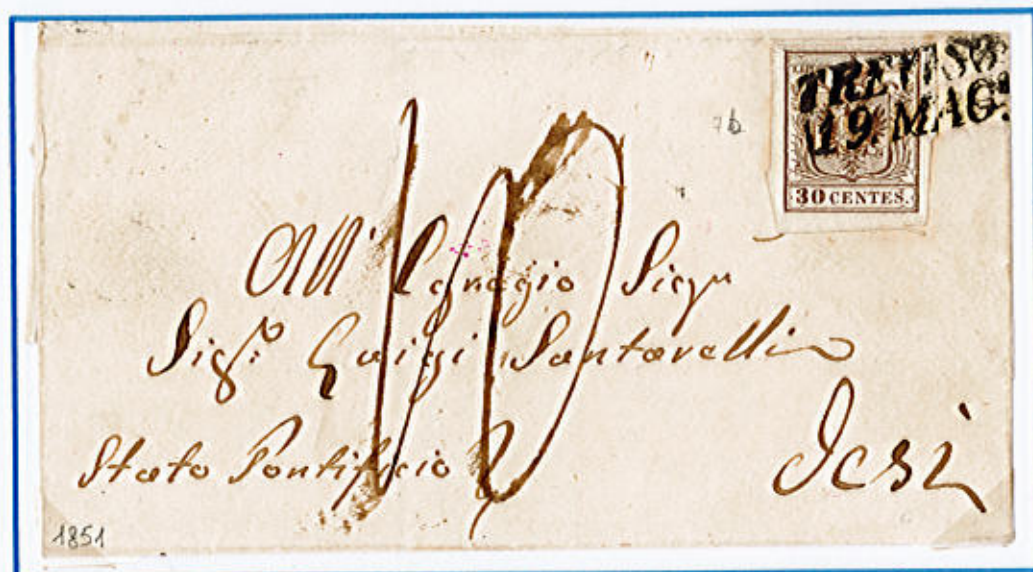 TREVISO
19. MAG.
7b
30 CENTES.
10
All' Egregio Sigr
Sigr. Luigi Santarelli
Stato Pontificio
Jesi
1851